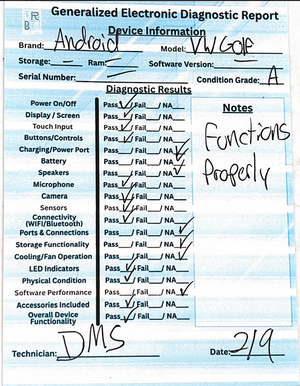 UR
RB
Generalized Electronic Diagnostic Report
Device Information
Brand: Android Model: VW Golf
Storage: — Ram: — Software Version:
Serial Number: Condition Grade: A
Diagnostic Results
Power On/Off Pass ✓/ Fail / NA
Display / Screen Pass ✓/ Fail / NA
Touch Input Pass ✓/ Fail / NA
Buttons/Controls Pass ✓/ Fail / NA
Charging/Power Port Pass / Fail / NA ✓
Battery Pass / Fail / NA ✓
Speakers Pass / Fail / NA ✓
Microphone Pass ✓/ Fail / NA
Camera Pass ✓/ Fail / NA
Sensors Pass ✓/ Fail / NA
Connectivity (WIFI/Bluetooth) Pass ✓/ Fail / NA
Ports & Connections Pass / Fail / NA ✓
Storage Functionality Pass / Fail / NA ✓
Cooling/Fan Operation Pass / Fail / NA ✓
LED Indicators Pass ✓/ Fail / NA
Physical Condition Pass ✓/ Fail / NA
Software Performance Pass / Fail / NA ✓
Accessories Included Pass ✓/ Fail / NA
Overall Device Functionality Pass ✓/ Fail / NA
Notes
Functions
Properly
Technician: DMS Date: 2/9